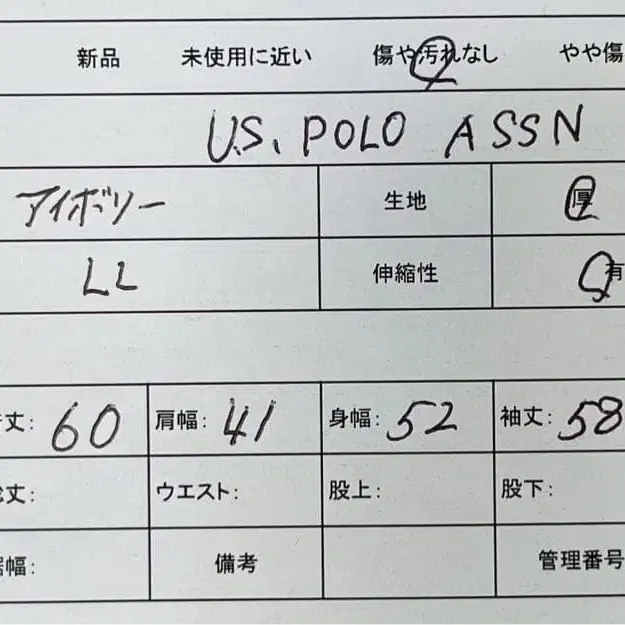 新品 未使用に近い 傷や汚れなし やや傷
U.S. POLO ASSN
アイボリー 生地 厚
LL 伸縮性 有
丈: 60 肩幅: 41 身幅: 52 袖丈: 58
丈: ウエスト: 股上: 股下:
幅: 備考 管理番号